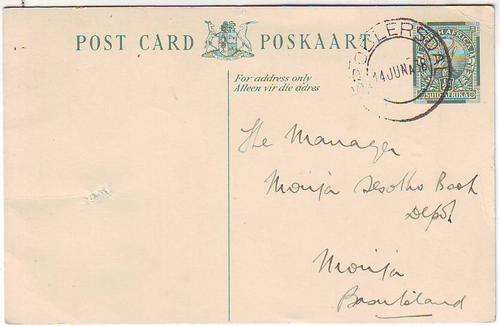 POST CARD POSKAART
For address only
Alleen vir die adres
14 JUN
SUID-AFRIKA
The Manager
Morija Sesotho Book
Depôt
Morija
Basutoland